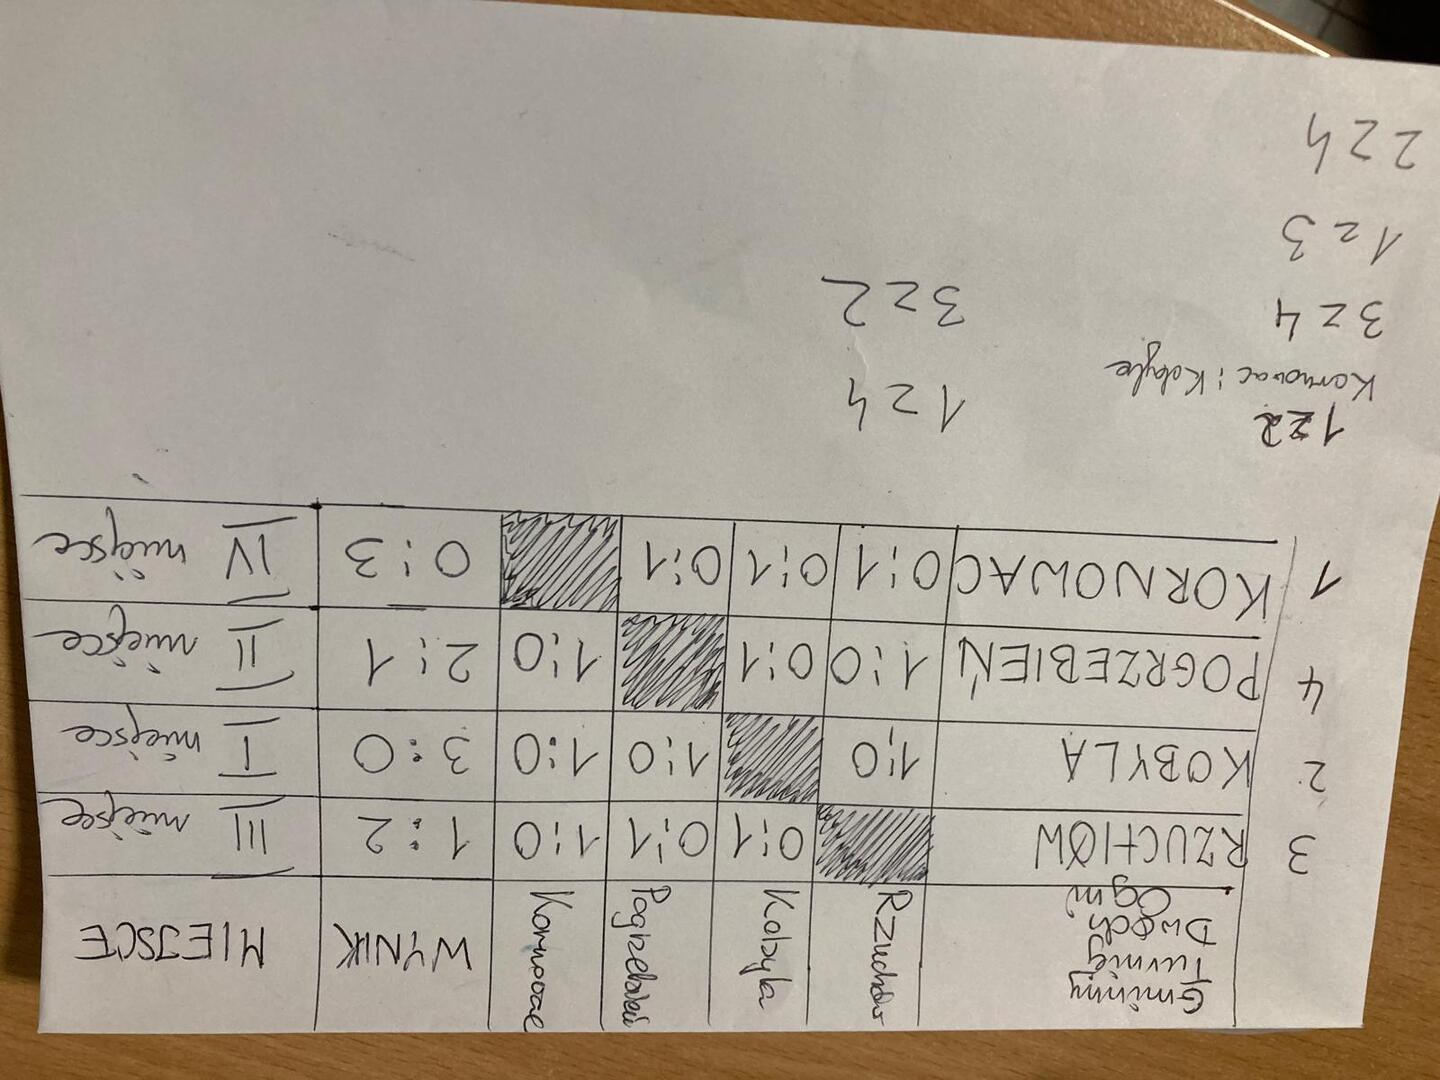 Gminny
Turniej
Dwóch
Ogni
Rzuchów
Kobyla
Pogrzebień
Kornowac
WYNIK
MIEJSCE
3 RZUCHÓW 0:1 0:1 1:0 1:2 III miejsce
2 KOBYLA 1:0 1:0 1:0 3:0 I miejsce
4 POGRZEBIEŃ 1:0 0:1 1:0 2:1 II miejsce
1 KORNOWAC 0:1 0:1 0:1 0:3 IV miejsce
1 z 2
Kornowac : Kobyla
3 z 4
1 z 3
2 z 4
1 z 4
3 z 2